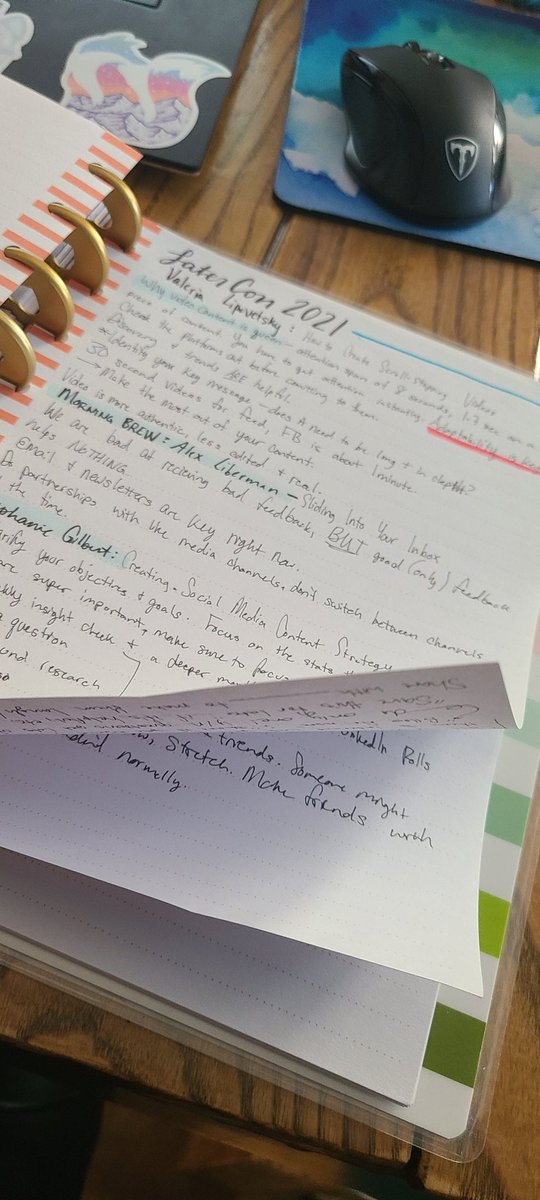 Later Con 2021
Valeria Lipovetsky: How to Create Scroll-Stopping Videos
Why video content is queen - attention span of 8 seconds, 1.7 sec on a
piece of content. You have to get attention instantly. Adaptability is key
Check the platforms out before comitting to them.
Discovery + trends ARE helpful.
Identify your key message - does it need to be long + in depth?
30 second videos for feed, FB is about 1 minute.
→ Make the most out of your content.
Video is more authentic, less edited + real.
MORNING BREW: Alex Liberman - Sliding Into Your Inbox
We are bad at recieving bad feedback, BUT good (only) feedback
helps NOTHING.
Email & newsletters are key right now.
Do partnerships with like media channels, don't switch between channels
the time.
Stephanie Gilbert: Creating a Social Media Content Strategy
your objectives & goals. Focus on the stats
are super important, make sure to focus
insight check +
a question
a deeper
research
Share with
"Save this for later"
LinkedIn Polls
+ trends. Someone might
, Stretch. Make friends with
normally.